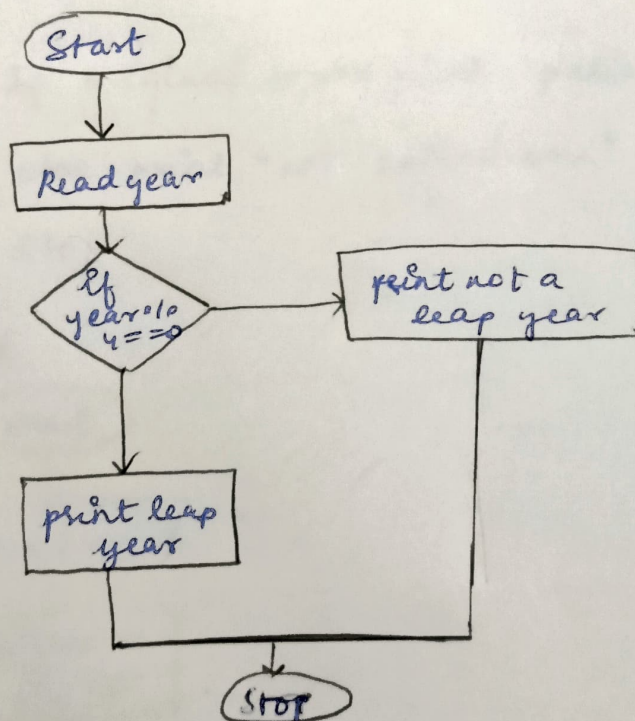 Start
Read year
if
year%
4==0
print not a
leap year
print leap
year
Stop